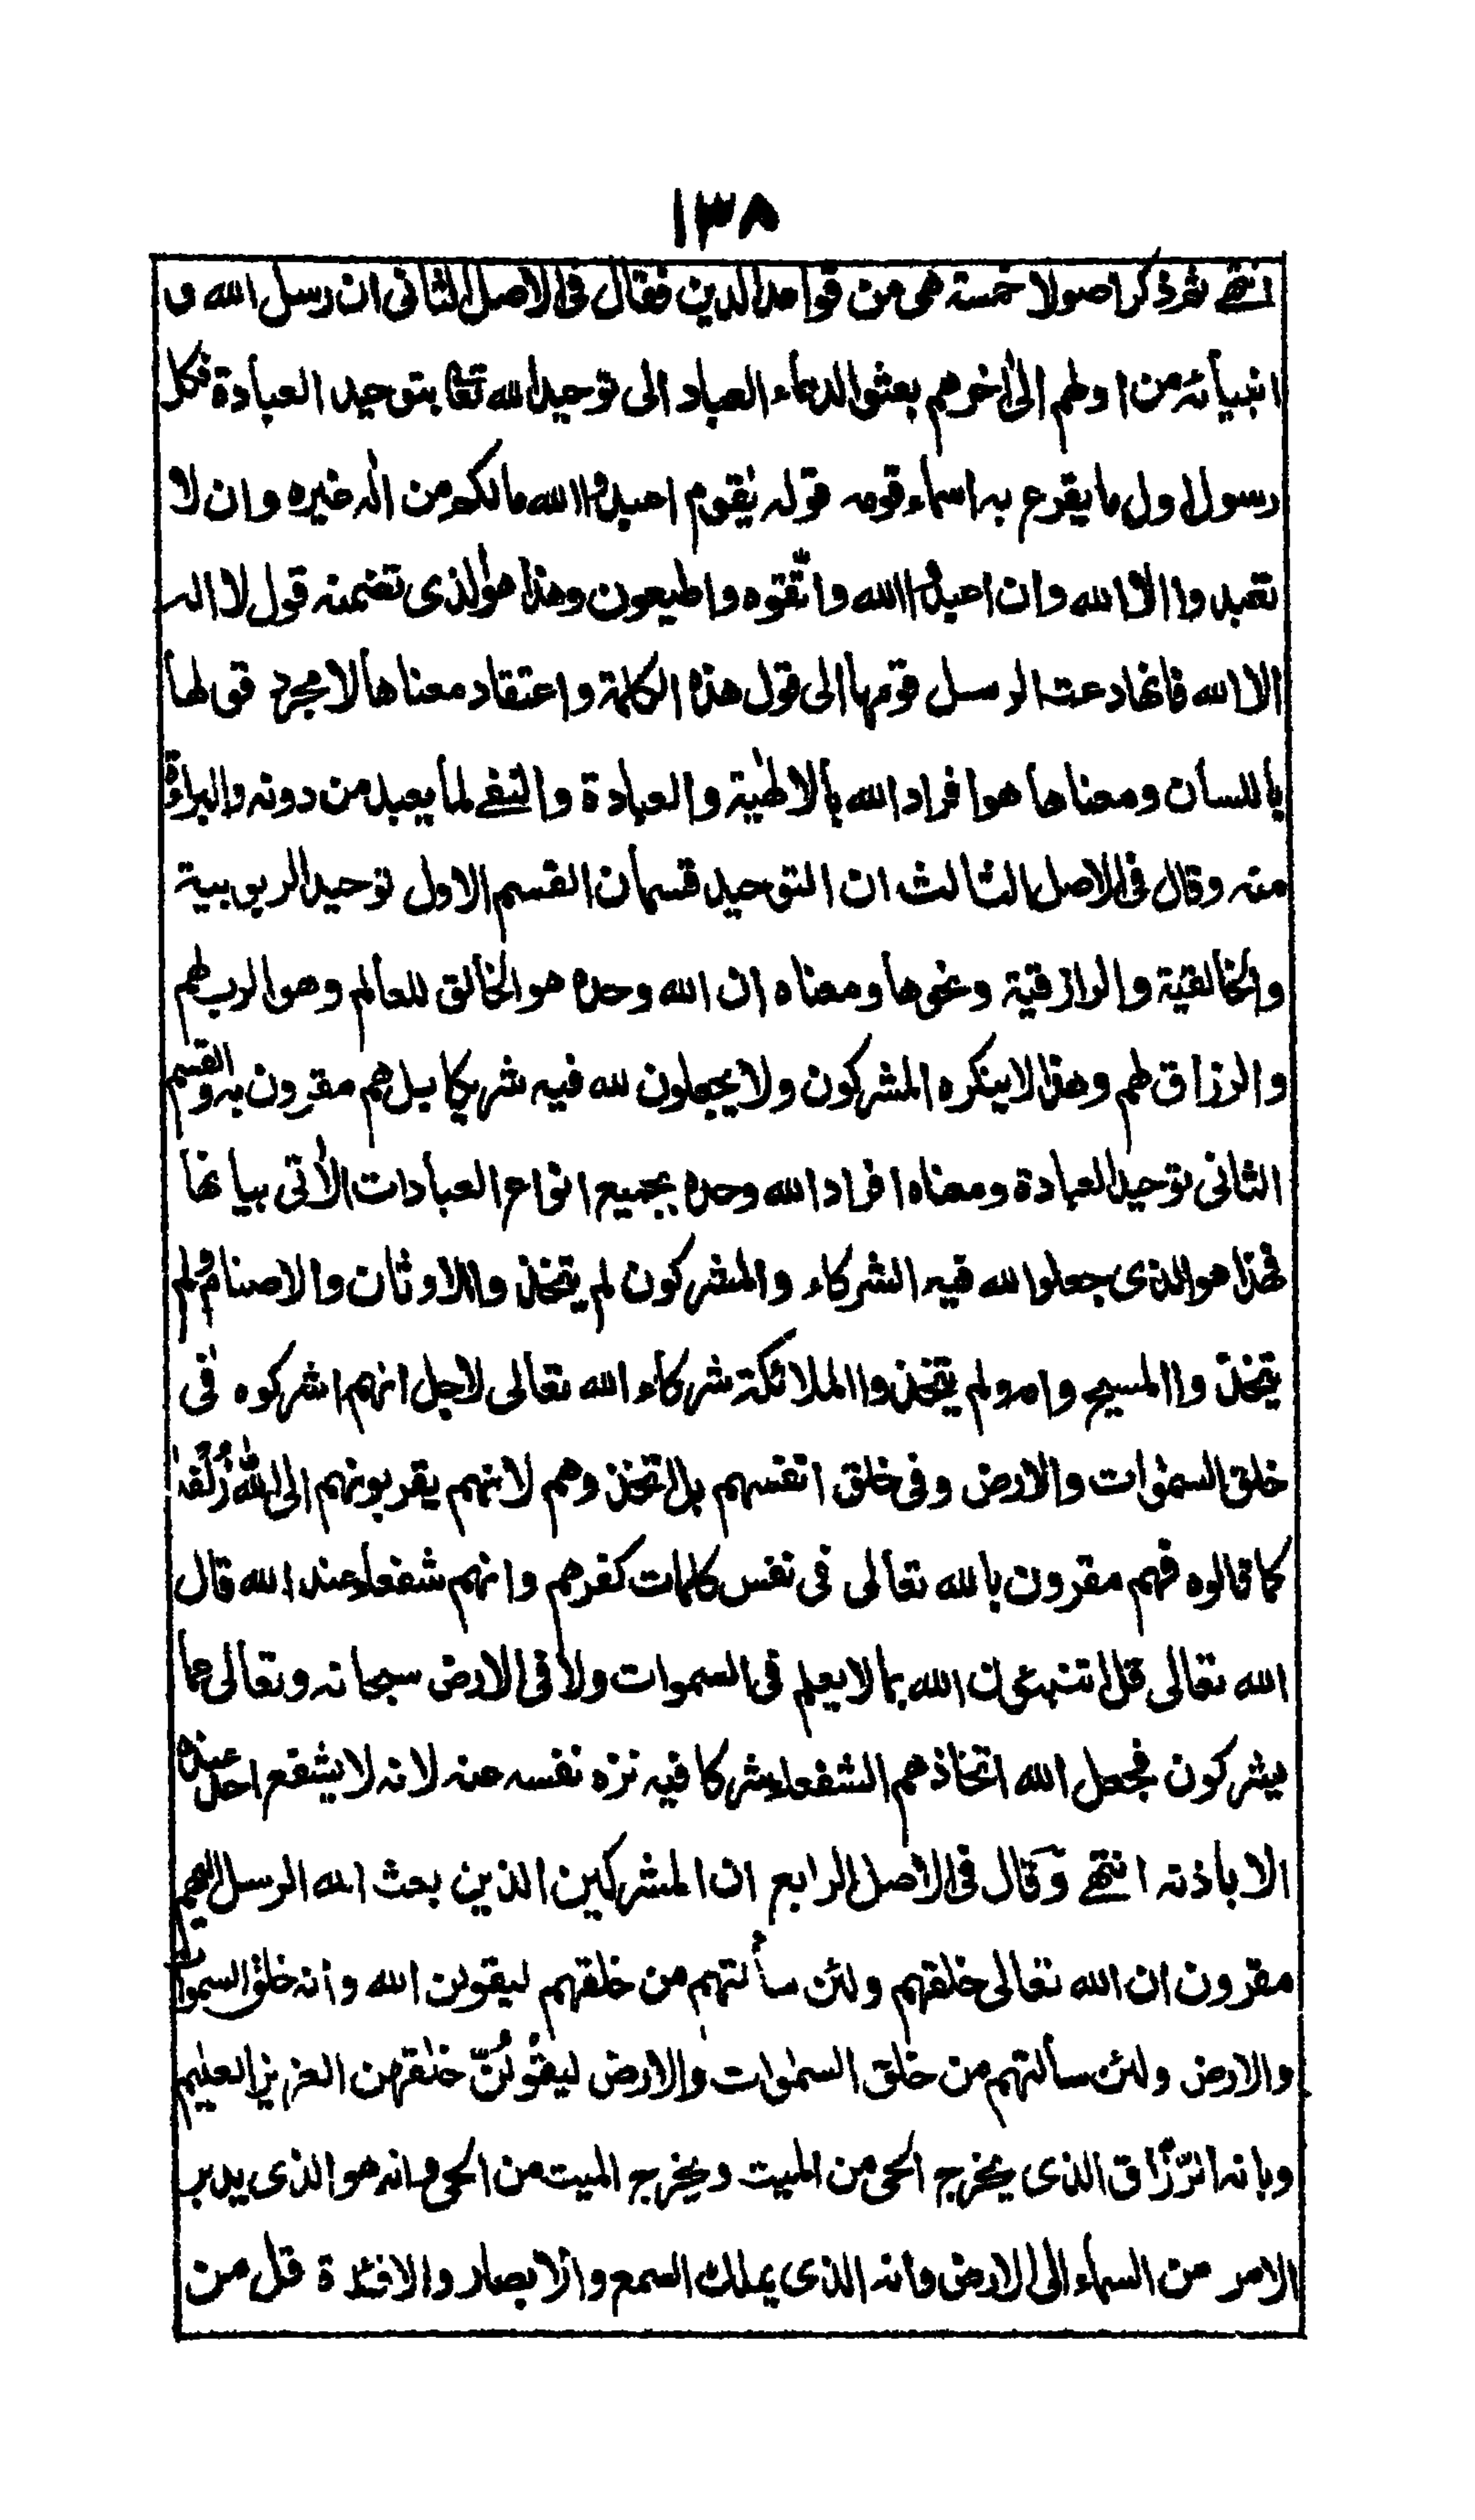 ١٣٨
انتهى ثم ذكر اصولا خمسة هى من قواعد الدين فقال فى الاصل الثانى ان رسل الله و
انبيائه من اولهم الى اٰخرهم بعثوا لدعاء العباد الى توحيد الله تعا بتوحيد العبادة فكل
رسول اول ما يقرع به اسماع قومه قوله يٰقوم اعبدوا الله مالكم من الٰه غيره وان لا
تعبدوا الا الله وان اعبدوا الله واتّقوه واطيعون وهذا هو الذى تضمنه قول لا اله
الا الله فانما دعت الرسل قومها الى قول هذه الكلمة واعتقاد معناها لا مجرد قولها
باللسان ومعناها هو افراد الله بالالٰهية والعبادة والنفى لما يعبد من دونه والبراءة
منه وقال فى الاصل الثالث ان التوحيد قسمان القسم الاول توحيد الربوبية
والخالقية والرازقية ونحوها ومعناه ان الله وحده هو الخالق للعالم وهو الرب لهم
والرزاق لهم وهذا لا ينكره المشركون ولا يجعلون لله فيه شريكا بل هم مقرون به والقسم
الثانى توحيد العبادة ومعناه افراد الله وحده بجميع انواع العبادات الاٰتى بيانها
فهذا هو الذى جعلوا لله فيه الشركاء والمشركون لم يتخذوا الاوثان والاصنام ولم
يتخذوا المسيح وامه ولم يتخذوا الملائكة شركاء الله تعالى لاجل انهم اشركوه فى
خلق السمٰوات والارض وفى خلق انفسهم بل اتخذوهم لانهم يقربونهم الى الله زُلْفٰى
كما قالوه فهم مقرون بالله تعالى فى نفس كلمات كفرهم وانهم شفعاء عند الله قال
الله تعالى قل اتنبئون الله بما لا يعلم فى السموات ولا فى الارض سبحانه وتعالى عما
يشركون فجعل الله اتخاذهم الشفعاء شركا فيه نزه نفسه عنه لانه لا يشفع احد عنده
الا باذنه انتهى وقال فى الاصل الرابع ان المشركين الذين بعث الله الرسل اليهم
مقرون ان الله تعالى خلقهم ولئن سألتهم من خلقهم ليقولن الله وانه خلق السموات
والارض ولئن سالتهم من خلق السمٰوات والارض ليقُولُنّ خلقهن العزيز العليم
وبانه الرّزّاق الذى يخرج الحى من الميت ويخرج الميت من الحى وانه هو الذى يدبر
الامر من السماء الى الارض وانه الذى يملك السمع والابصار والافئدة قل من